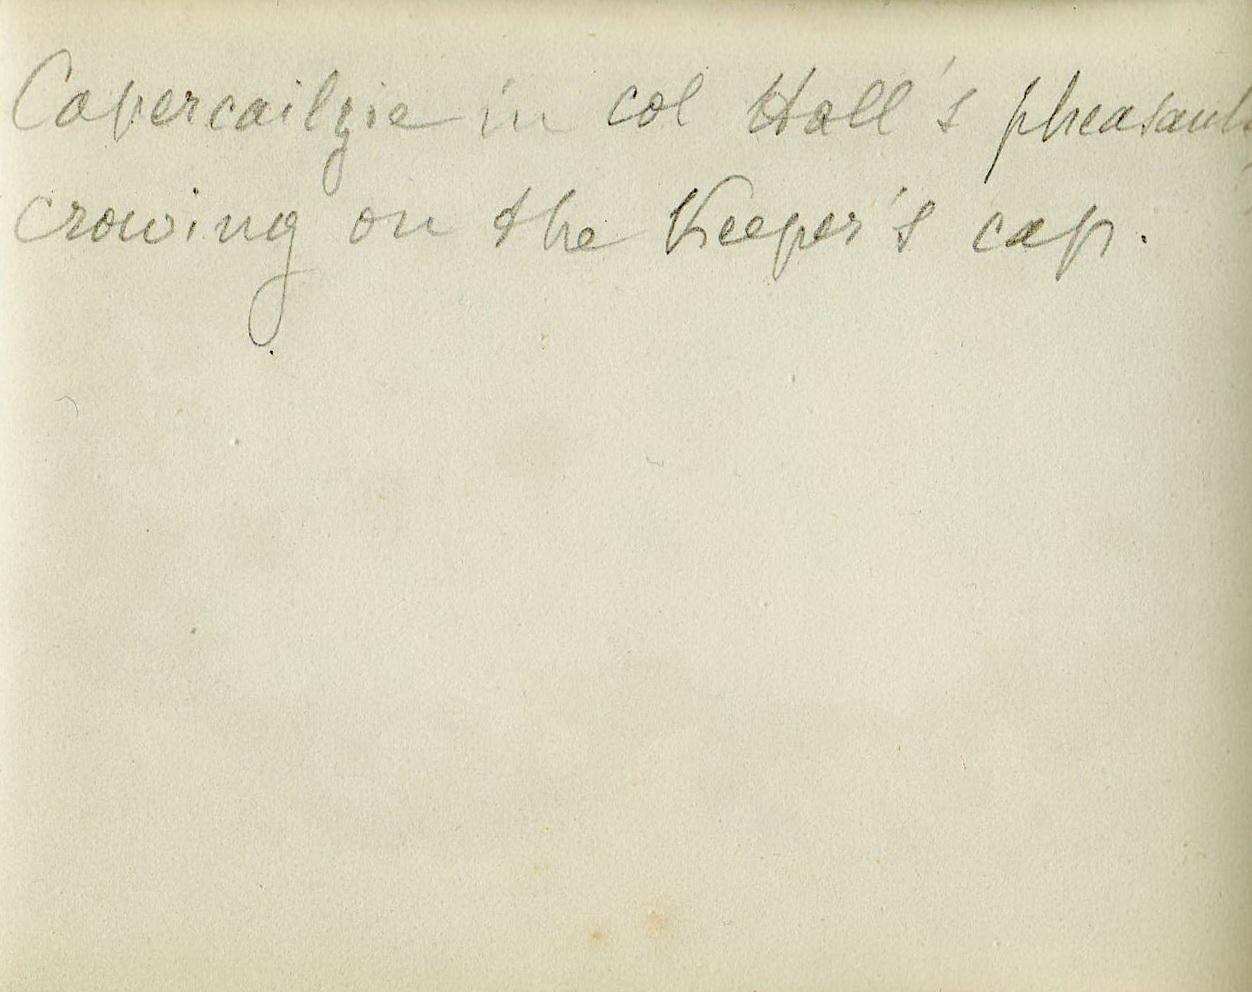 Capercailzie in col Hall's pheasant
crowing on the Keeper's cap.